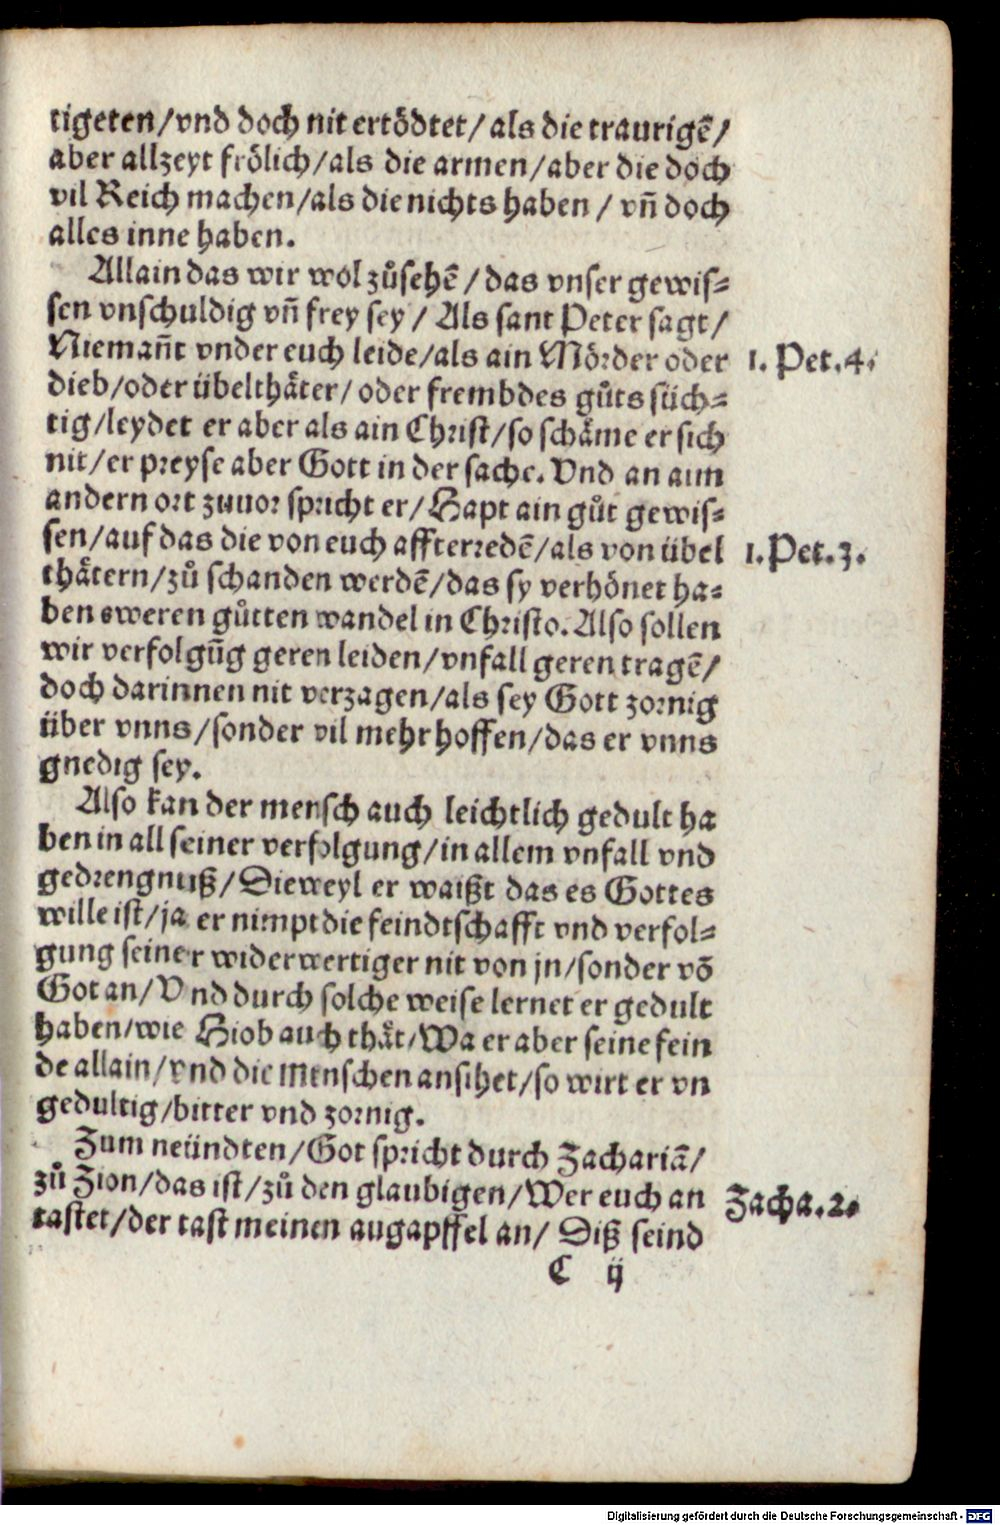 tigeten/vnd doch nit ertödtet/ als die traurigē/
aber allzeyt frölich/als die armen/aber die doch
vil Reich machen/als die nichts haben / vñ doch
alles inne haben.
Allain das wir wol zůsehē / das vnser gewis-
sen vnschuldig vñ frey sey / Als sant Peter sagt/
Niemañt vnder euch leide/als ain Mörder oder
1. Pet.4.
dieb/oder übelthäter/ oder frembdes gůts süch-
tig/leydet er aber als ain Christ/so schäme er sich
nit/er preyse aber Gott in der sache. Vnd an aim
andern ort zuuor spricht er/Hapt ain gůt gewis-
sen/auf das die von euch affterredē/als von übel
1.Pet.3.
thätern/zů schanden werdē/das sy verhönet ha-
ben eweren gůtten wandel in Christo. Also sollen
wir verfolgūg geren leiden/vnfall geren tragē/
doch darinnen nit verzagen/als sey Gott zornig
über vnns/sonder vil mehr hoffen/das er vnns
gnedig sey.
Also kan der mensch auch leichtlich gedult ha
ben in all seiner verfolgung/in allem vnfall vnd
gedrengnuß/Dieweyl er waißt das es Gottes
wille ist/ja er nimpt die feindtschafft vnd verfol-
gung seiner widerwertiger nit von jn/sonder vō
Got an/Vnd durch solche weise lernet er gedult
haben/wie Hiob auch thät/Wa er aber seine fein
de allain/vnd die Menschen ansihet/so wirt er vn
gedultig/bitter vnd zornig.
Zum neündten/Got spricht durch Zachariā/
zů Zion/das ist/zů den glaubigen/Wer euch an
Zacha.2.
tastet/der tast meinen augapffel an/ Diß seind
C ij
Digitalisierung gefördert durch die Deutsche Forschungsgemeinschaft - DFG